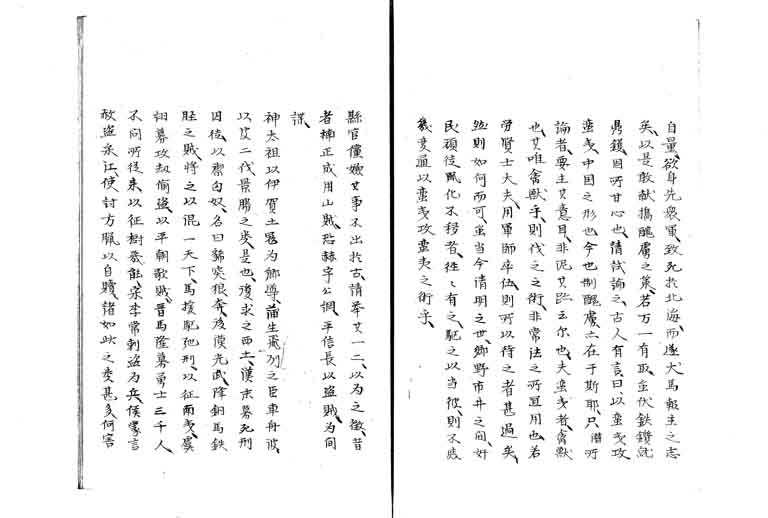 自量欲身先衆軍致死於北海而遂犬馬報主之志
矣以是敢献搗醜虜之策若万一有取至伏鉄鑕就
鼎鑊固所甘心也請試論之古人有言曰以蛮夷攻
蛮夷中国之形也今也制醜虜亦在于斯耶只潜所
論者要主其意耳非泥其跡云尓也夫蛮夷者禽獣
也其唯禽獣乎則伐之之術非常法之所宜用也若
労賢士大夫用軍師卒伍則所以待之者甚過矣
然則如何而可虽当今清明之世郷野市井之间奸
民頑徒風化不移者往々有之駈之以当彼則不
幾变通以蛮夷攻蛮夷之術乎
縣官僅 其事不出於古請举其一二以為之徴昔
者楠正成用山賊恐赫宇公綱平信長以盗賊为间
諜
神太祖以伊賀土冦为郷導蒲生飛列之臣車舟波
以其二代景勝之麦是也復求之西土漢末募死刑
囚徒以禦匈奴名曰豨突狼奔後漢光武降銅馬鉄
脛之賊将之以混一天下馬援駈弛刑以征南夷虞
詡募攻劫偷盗以平朝歌賊晋馬隆募勇士三千人
不问所従来以征樹機能宋李常刺盗为兵候蒙言
赦盗宋江使討方臘以自贖諸如此之委甚多何害